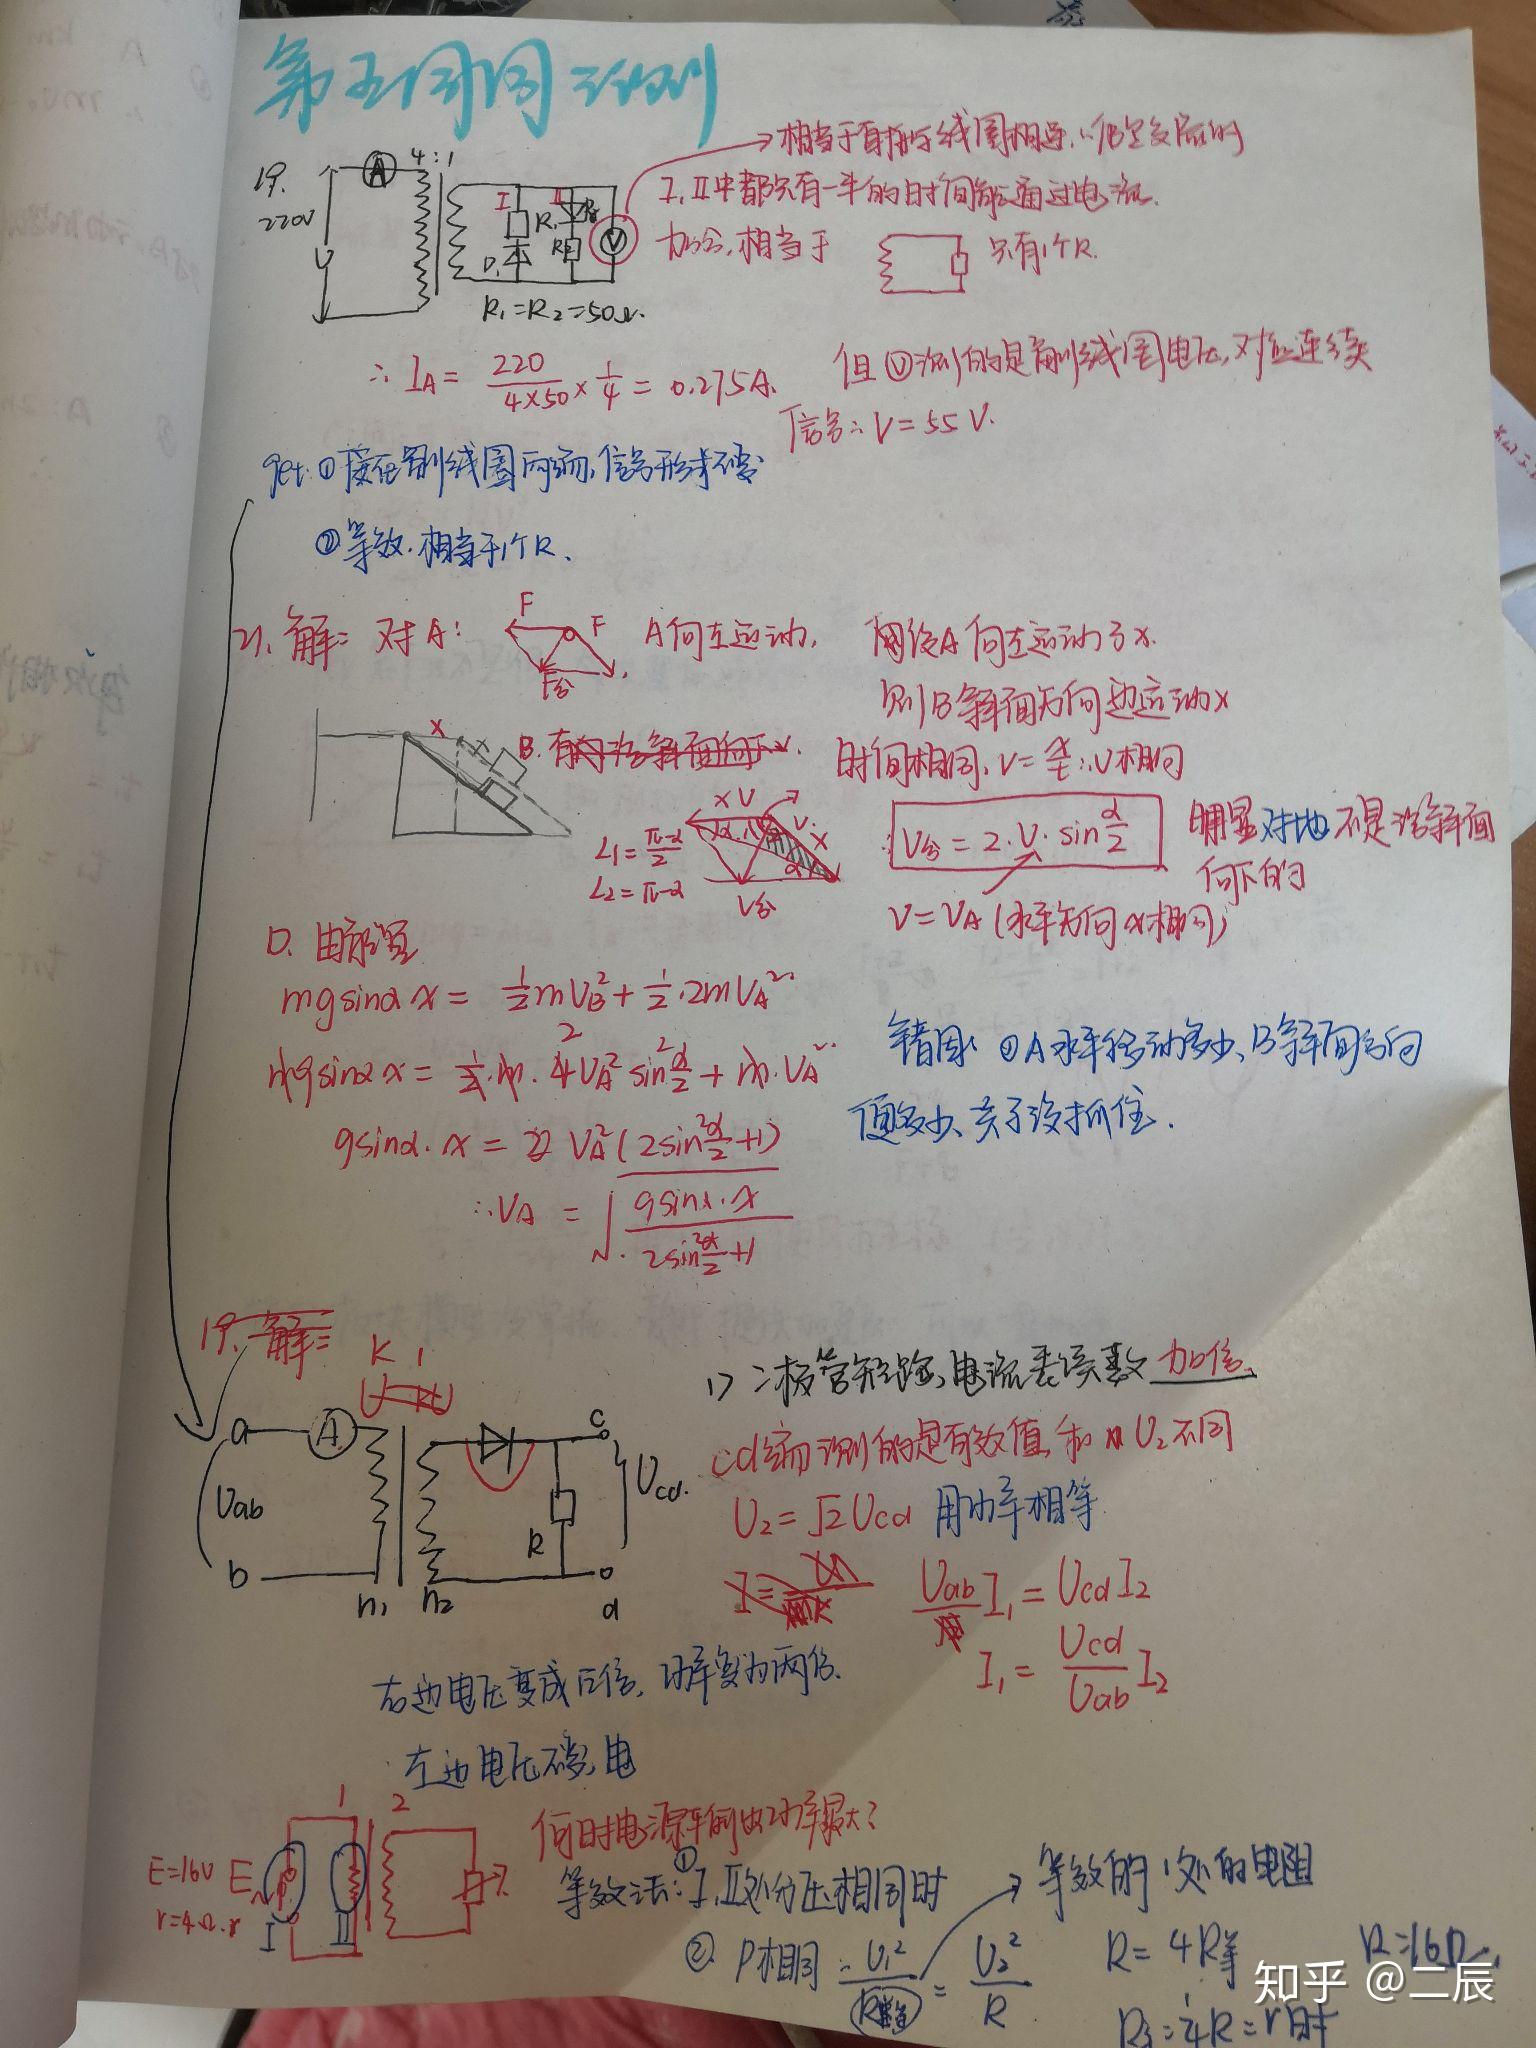 第五周周三理测
19.
220V
A
4:1
I
R₁
D₁
R₂
V
R₁=R₂=50Ω.
→相当于直接与线圈相连,
I,II中都只有一半的时间能通过电流.
加合,相当于
只有1个R.
∴ I_A = 220/(4×50) × 1/4 = 0.275A.
但Ⓥ测的是副线圈电压,对应连续
信号∴V=55V.
get:①接在副线圈两端,信号形式不变
②等效.相当于1个R.
21.解:对A:
F
F
F合
A向左运动.
则B斜面方向边运动x
时间相同,V=x/t∴V相同
x
x
B.
x V
V.
x
∠1=(π-α)/2
∠2=π-α
α
V合
∴V合=2·V·sin α/2
明显对地不是沿斜面
向下的
V=V_A(水平方向x相同)
D.
mgsinα x = ½mV_B²+½·2mV_A²
mgsinα x = ½·m·4V_A² sin²α/2 + m·V_A²
gsinα·x = V_A²(2sin²α/2+1)
∴V_A = √(gsinα·x/(2sin²α/2+1))
错因:①A水平移动多少、B斜面方向
便多少、关系没抓住.
19.解:
K 1
a
A
Uab
b
n₁ n₂
R
c
Ucd.
d
1>二极管短路,电流表读数加倍.
cd端测的是有效值,和U₂不同
U₂=√2Ucd 用功率相等
Uab I₁=Ucd I₂
I₁=Ucd/Uab I₂
右边电压变成√2倍,功率变为两倍.
左边电压不变,电
1
2
E=16V
r=4Ω.
E
r
I
II
R
何时电源输出功率最大?
等效法:①I,II处分压相同时
→等效的1处的电阻
②P相同∴U₁²/R等=U₂²/R
R=4R等
R=16Ω.
R等=¼R=r时
知乎 @二辰